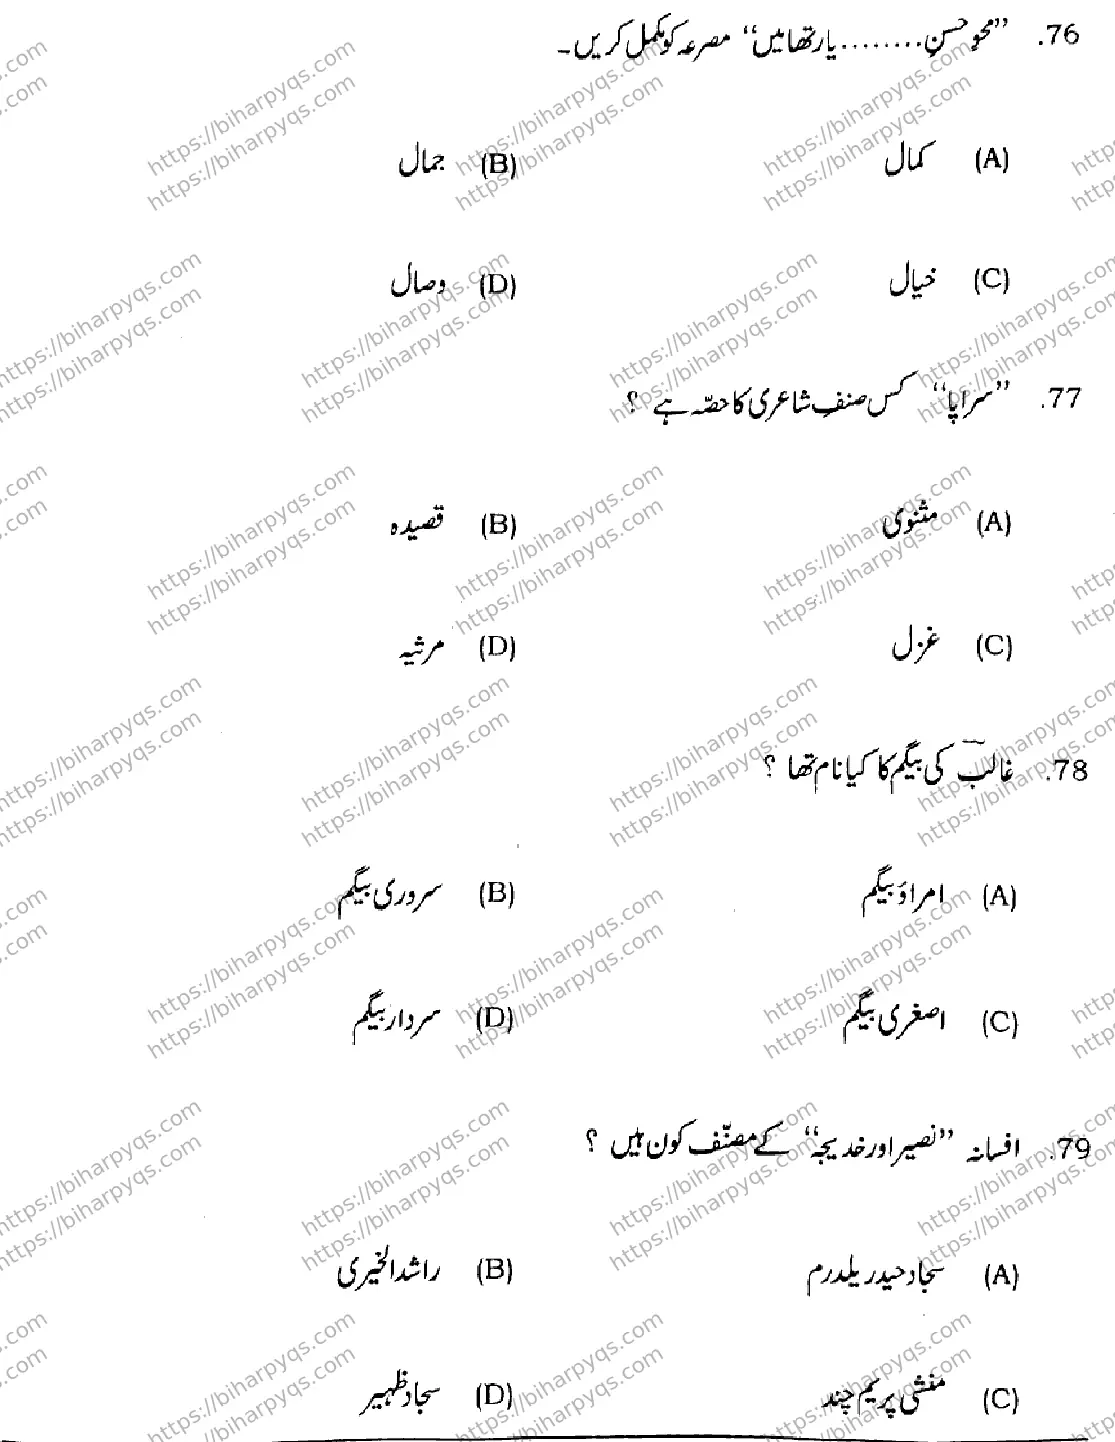 76. ”محوِ حسنِ ........ یار تھا میں“ مصرعہ کو مکمل کریں۔
(A) کمال (B) جمال
(C) خیال (D) وصال
77. ”سراپا“ کس صنفِ شاعری کا حصّہ ہے ؟
(A) مثنوی (B) قصیدہ
(C) غزل (D) مرثیہ
78. غالبؔ کی بیگم کا کیا نام تھا ؟
(A) امراؤ بیگم (B) سروری بیگم
(C) اصغری بیگم (D) سردار بیگم
79. افسانہ ”نصیر اور خدیجہ“ کے مصنّف کون ہیں ؟
(A) سجاد حیدر یلدرم (B) راشد الخیری
(C) منشی پریم چند (D) سجاد ظہیر
https://biharpyqs.com